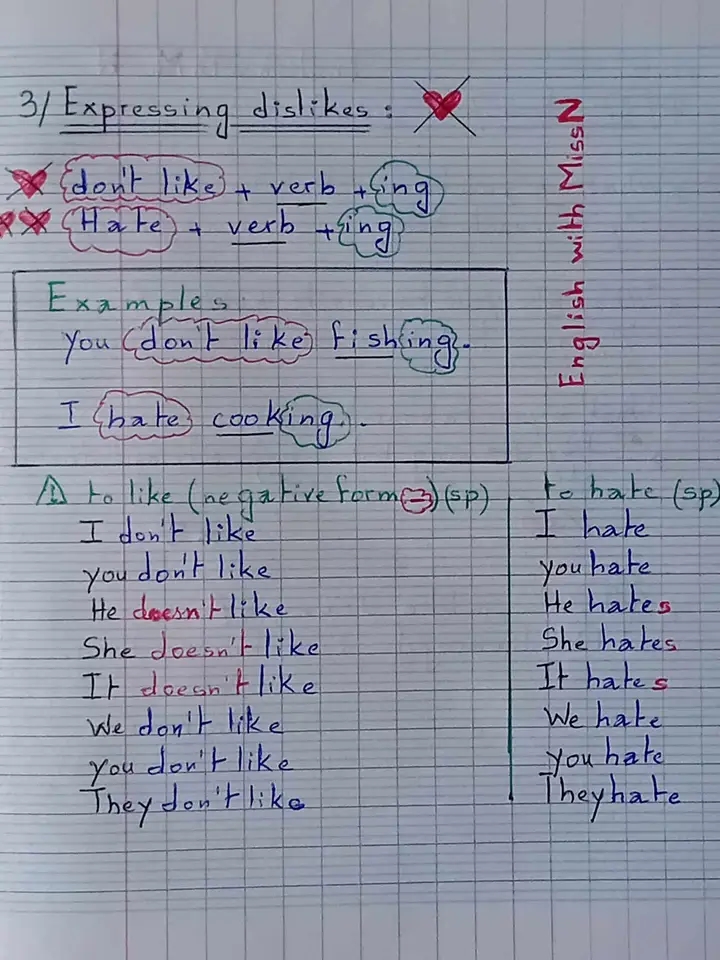 3/ Expressing dislikes :
don't like + verb + ing
Hate + verb + ing
Examples
you don't like fishing.
I hate cooking.
to like (negative form -) (sp)
I don't like
you don't like
He doesn't like
She doesn't like
It doesn't like
We don't like
you don't like
They don't like
to hate (sp)
I hate
you hate
He hates
She hates
It hates
We hate
you hate
They hate
English with MissN